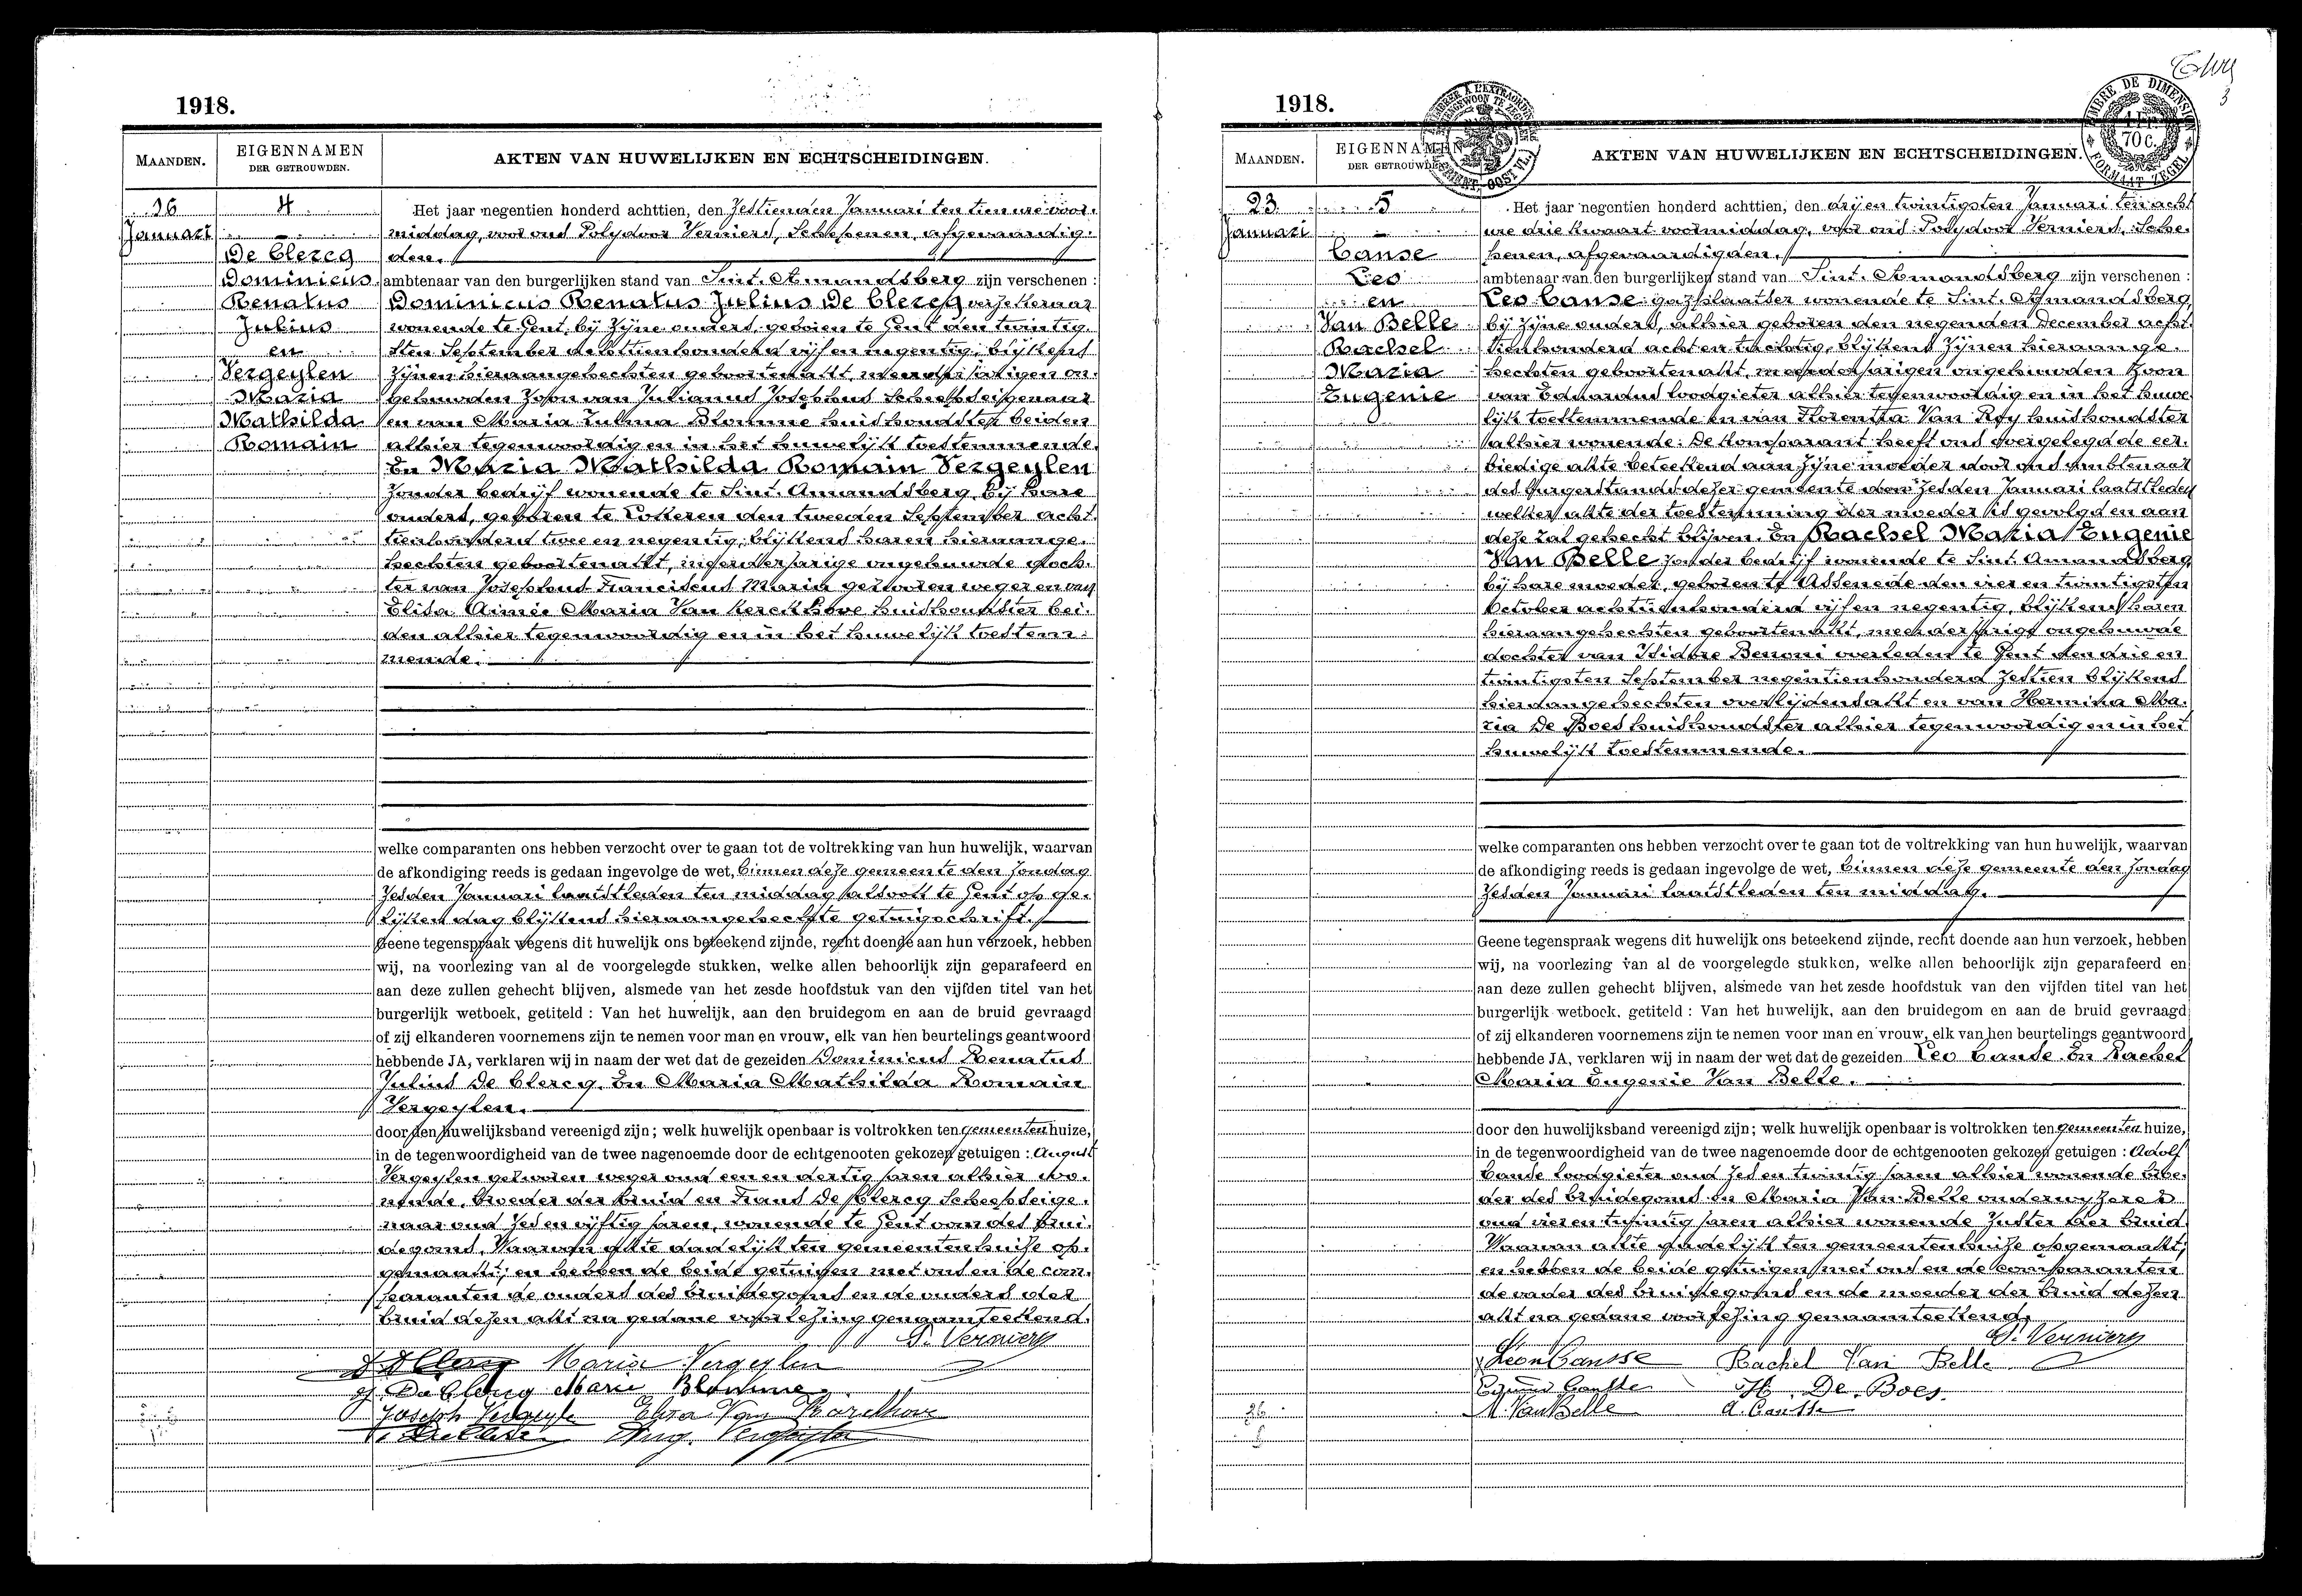 1918.
MAANDEN.
EIGENNAMEN
DER GETROUWDEN.
AKTEN VAN HUWELIJKEN EN ECHTSCHEIDINGEN.
16
Januari
4
De Clercq
Dominicus
Renatus
Julius
en
Vergeylen
Maria
Mathilda
Romain
Het jaar negentien honderd achttien, den Zestienden Januari ten tien ure voor-
middag, voor ons Polydoor Verniers, Schepenen, afgevaardig-
den.
ambtenaar van den burgerlijken stand van Sint-Amandsberg zijn verschenen :
Dominicus Renatus Julius De Clercq
wonende te Gent, bij zijne ouders, geboren te Gent den twintig-
sten September achttienhonderd vijf en negentig, blijkens
zijnen hieraangehechten geboortenakt, meerderjarigen on-
gehuwden zoon van Julianus Josephus scheepseigenaar
en van Maria Zulma Blomme huishoudster beiden
alhier tegenwoordig en in het huwelijk toestemmende.
En Maria Mathilda Romain Vergeylen
zonder bedrijf wonende te Sint-Amandsberg, bij hare
ouders, geboren te Lokeren den tweeden September acht-
tienhonderd twee en negentig, blijkens haren hieraange-
hechten geboortenakt, meerderjarige ongehuwde doch-
ter van Josephus Franciscus Maria gezworen weger en van
Elisa Aimée Maria Van Kerckhove huishoudster bei-
den alhier tegenwoordig en in het huwelijk toestem-
mende.
welke comparanten ons hebben verzocht over te gaan tot de voltrekking van hun huwelijk, waarvan
de afkondiging reeds is gedaan ingevolge de wet, binnen deze gemeente den Zondag
zesden Januari laatstleden ten middag alsook te Gent op ge-
lijken dag blijkens hieraangehechte getuigschrift.
Geene tegenspraak wegens dit huwelijk ons beteekend zijnde, recht doende aan hun verzoek, hebben
wij, na voorlezing van al de voorgelegde stukken, welke allen behoorlijk zijn geparafeerd en
aan deze zullen gehecht blijven, alsmede van het zesde hoofdstuk van den vijfden titel van het
burgerlijk wetboek, getiteld : Van het huwelijk, aan den bruidegom en aan de bruid gevraagd
of zij elkanderen voornemens zijn te nemen voor man en vrouw, elk van hen beurtelings geantwoord
hebbende JA, verklaren wij in naam der wet dat de gezeiden Dominicus Renatus
Julius De Clercq. En Maria Mathilda Romain
Vergeylen.
door den huwelijksband vereenigd zijn ; welk huwelijk openbaar is voltrokken ten gemeentenhuize,
in de tegenwoordigheid van de twee nagenoemde door de echtgenooten gekozen getuigen : August
Vergeylen gezworen weger oud een en dertig jaren alhier wo-
nende, broeder der bruid en Frans De Clercq Scheepseige-
naar oud zes en vijftig jaren, wonende te Gent oom des brui-
degoms. Waarvan akte dadelijk ten gemeentenhuize op-
gemaakt; en hebben de beide getuigen met ons en de com-
paranten de ouders des bruidegoms en de ouders der
bruid dezen akt na gedane voorlezing genaamteekend.
P. Verniers
Maria Vergeylen
Marie Blomme
Joseph Vergeyle Elisa Van Kerckhove
Aug. Vergeylen
1918.
3
TIMBRE DE DIMENSION
70 c.
FORMAAT ZEGEL
MAANDEN.
EIGENNAMEN
DER GETROUWDEN.
AKTEN VAN HUWELIJKEN EN ECHTSCHEIDINGEN.
23
Januari
5
Canse
Leo
en
Van Belle
Rachel
Maria
Eugenie
Het jaar negentien honderd achttien, den drij en twintigsten Januari ten acht
ure drie kwaart voormiddag, voor ons Polydoor Verniers, Sche-
penen, afgevaardigden.
ambtenaar van den burgerlijken stand van Sint-Amandsberg zijn verschenen :
Leo Canse gazplaatser wonende te Sint-Amandsberg,
bij zijne ouders, alhier geboren den negenden December acht-
tienhonderd acht en tachtig, blijkens zijnen hieraange-
hechten geboortenakt, meerderjarigen ongehuwden zoon
van Eduardus loodgieter alhier tegenwoordig en in het huwe-
lijk toestemmende en van Florentia Van Roy huishoudster
alhier wonende. De komparant heeft ons overgelegd de eer-
biedige akte beteekend aan zijne moeder door ons ambtenaar
des burgerstands dezer gemeente den zesden Januari laatstleden
welken akte der toestemming der moeder is gevolgd en aan
deze zal gehecht blijven. En Rachel Maria Eugenie
Van Belle zonder bedrijf wonende te Sint-Amandsberg,
bij hare moeder, geboren te Assenede den vier en twintigsten
October achttienhonderd vijf en negentig, blijkens haren
hieraangehechten geboortenakt, meerderjarige ongehuwde
dochter van Isidore Benoni overleden te Gent den drie en
twintigsten September negentienhonderd zestien blijkens
hieraangehechten overlijdensakt en van Hermina Ma-
ria De Boes huishoudster alhier tegenwoordig en in het
huwelijk toestemmende.
welke comparanten ons hebben verzocht over te gaan tot de voltrekking van hun huwelijk, waarvan
de afkondiging reeds is gedaan ingevolge de wet, binnen deze gemeente den Zondag
zesden Januari laatstleden ten middag.
Geene tegenspraak wegens dit huwelijk ons beteekend zijnde, recht doende aan hun verzoek, hebben
wij, na voorlezing van al de voorgelegde stukken, welke allen behoorlijk zijn geparafeerd en
aan deze zullen gehecht blijven, alsmede van het zesde hoofdstuk van den vijfden titel van het
burgerlijk wetboek, getiteld : Van het huwelijk, aan den bruidegom en aan de bruid gevraagd
of zij elkanderen voornemens zijn te nemen voor man en vrouw, elk van hen beurtelings geantwoord
hebbende JA, verklaren wij in naam der wet dat de gezeiden Leo Canse. En Rachel
Maria Eugenie Van Belle.
door den huwelijksband vereenigd zijn ; welk huwelijk openbaar is voltrokken ten gemeentenhuize,
in de tegenwoordigheid van de twee nagenoemde door de echtgenooten gekozen getuigen : Adolf
Canse loodgieter oud zes en twintig jaren alhier wonende broe-
der des bruidegoms en Maria Van Belle onderwyzeres
oud vier en twintig jaren alhier wonende zuster der bruid
Waarvan akte dadelijk ten gemeentenhuize opgemaakt,
en hebben de beide getuigen met ons en de comparanten
de vader des bruidegoms en de moeder der bruid dezen
akt na gedane voorlezing genaamteekend.
P. Verniers
Leon Cansse Rachel Van Belle
H. De Boes.
M. Van Belle A. Cansse